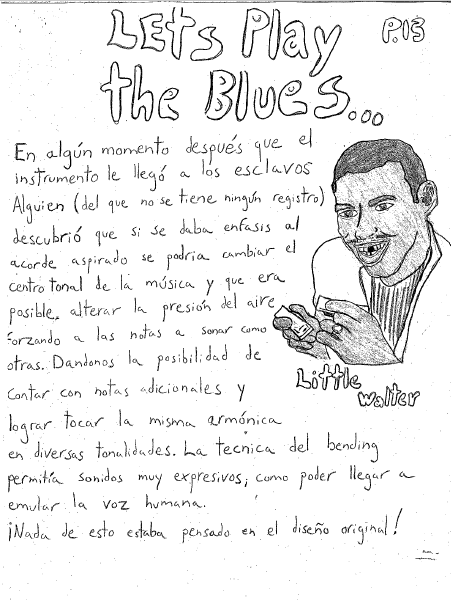 LEts Play
P.13
the Blues...
En algún momento después que el
instrumento le llegó a los esclavos
Alguien (del que no se tiene ningún registro)
descubrió que si se daba enfasis al
acorde aspirado se podria cambiar el
centro tonal de la música y que era
posible, alterar la presión del aire
forzando a las notas a sonar como
otras. Dandonos la posibilidad de
contar con notas adicionales y
lograr tocar la misma armónica
en diversas tonalidades. La tecnica del bending
permitía sonidos muy expresivos, como poder llegar a
emular la voz humana.
¡Nada de esto estaba pensado en el diseño original!
Little
Walter